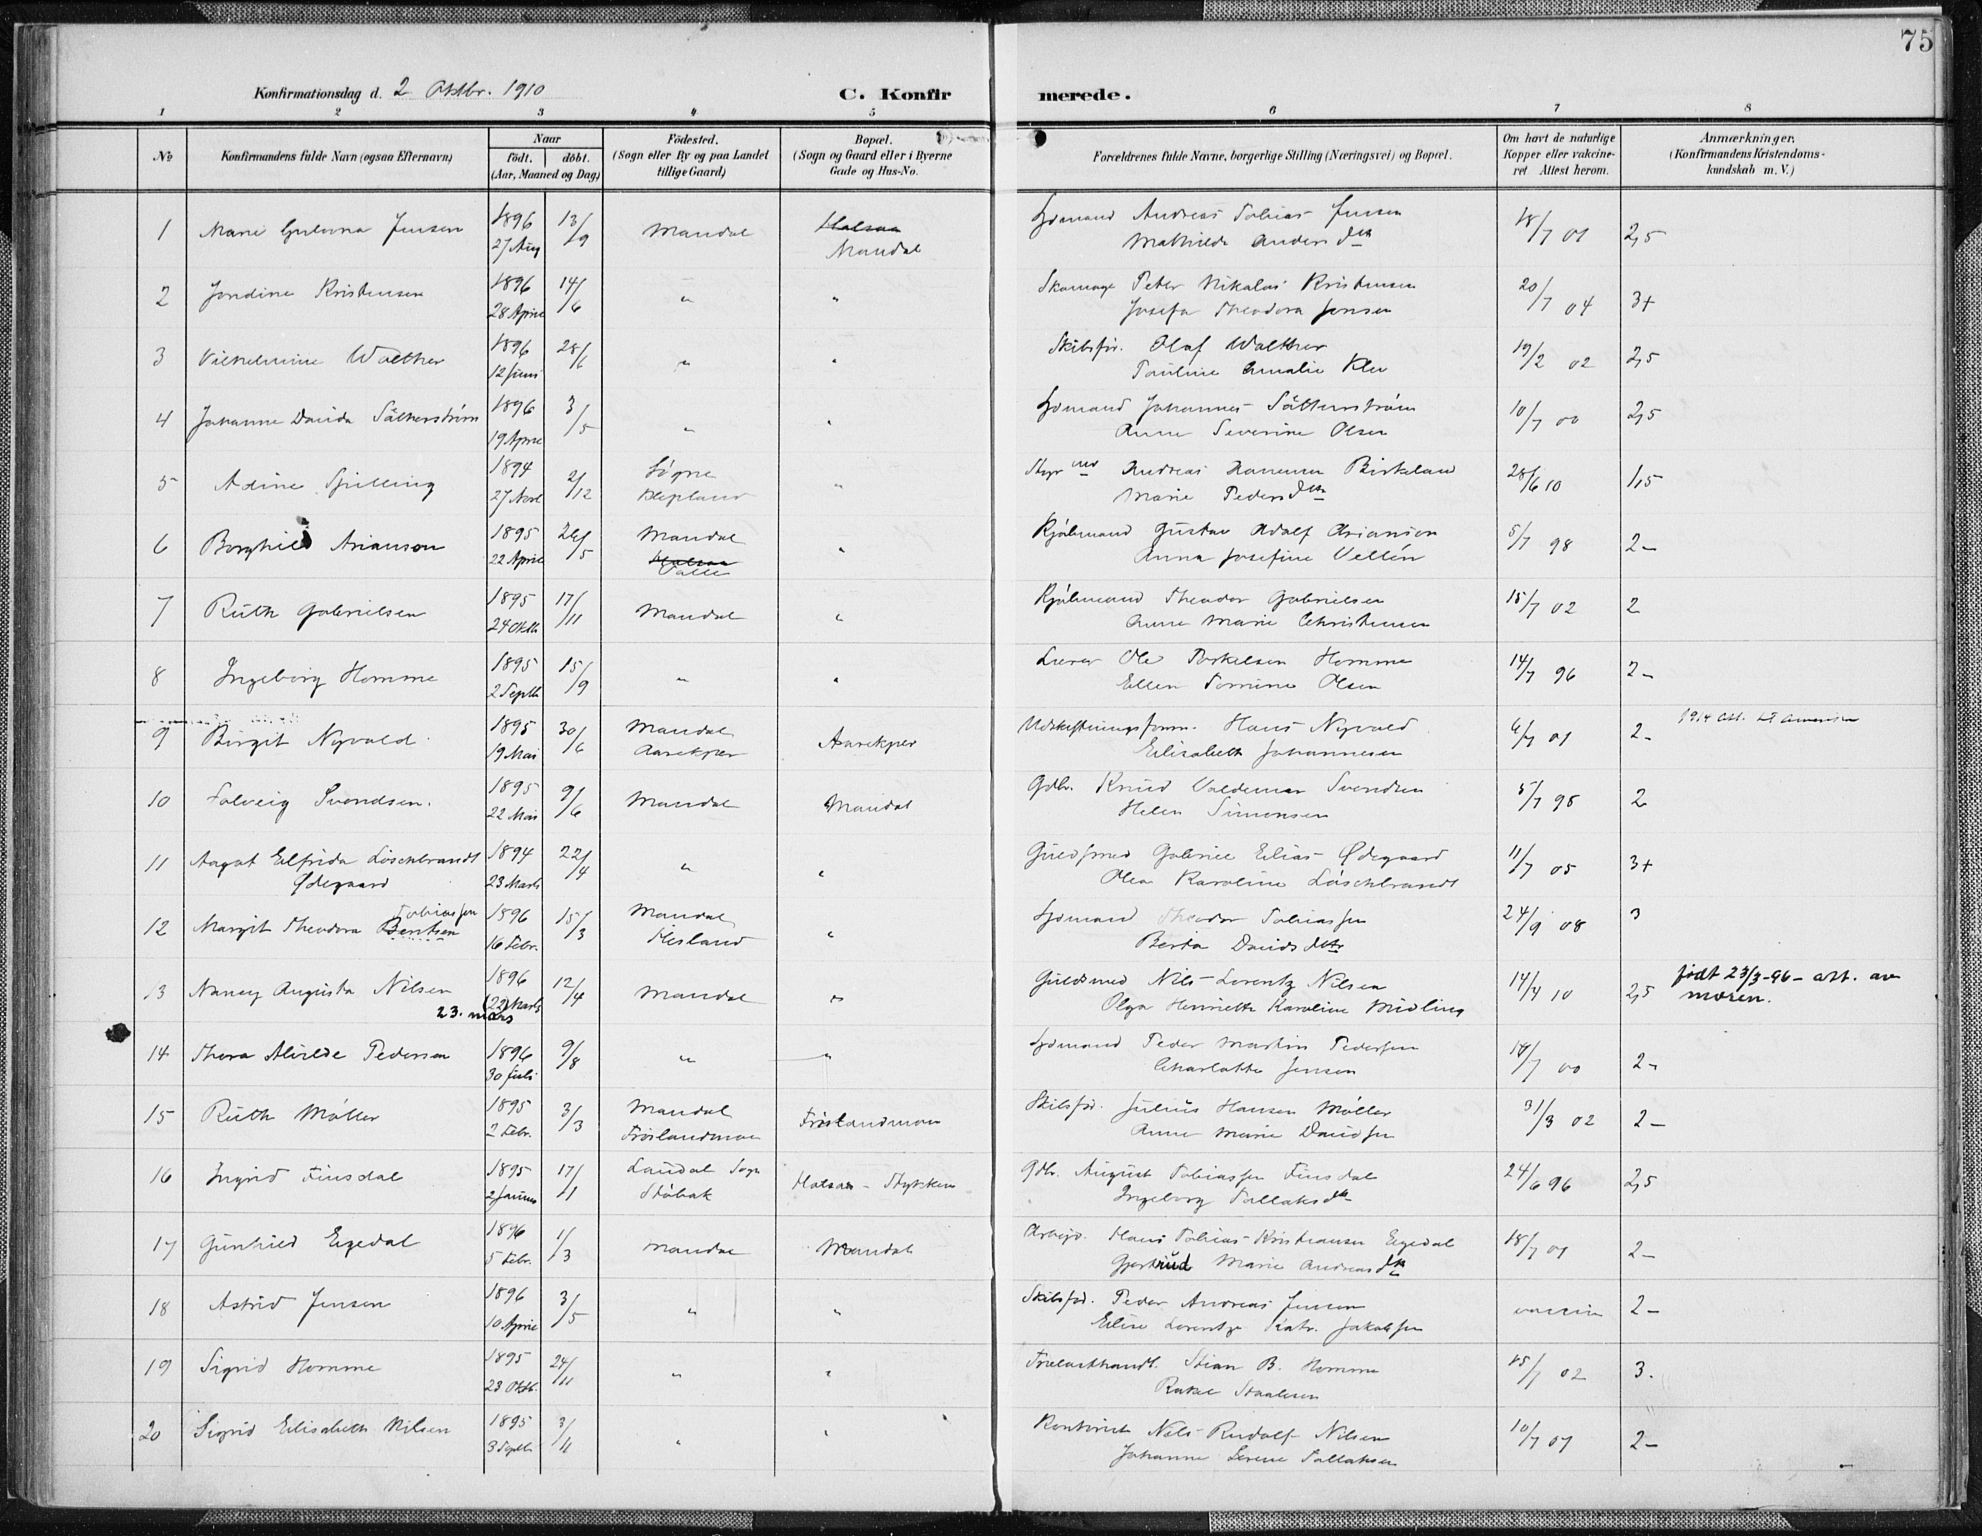 75
Konfirmationsdag d. 2 Oktbr. 1910
C. Konfirmerede.
1 2 3 4 5 6 7 8
No
Konfirmandens fulde Navn (ogsaa Efternavn)
Naar
födt. döbt.
(Aar, Maaned og Dag)
Födested.
(Sogn eller By og paa Landet
tillige Gaard)
Bopæl.
(Sogn og Gaard eller i Byerne
Gade og Hus-No.
Forældrenes fulde Navne, borgerlige Stilling (Næringsvei) og Bopæl.
Om havt de naturlige
Kopper eller vakcine-
ret Attest herom.
Anmærkninger.
(Konfirmandens Kristendoms-
kundskab m. V.)
1 Marie Jensen 1896 13/9 Mandal Halsaa Sjømand Andreas Tobias Jensen 18/7 01 2,5
27 Aug Mandal Mathilde Andersdtr
2 Jondine Kristensen 1896 14/6 " " Skomage Peter Nikolai Kristensen 20/7 04 3+
28 April Josefa Theodora Jensen
3 Vilhelmine Walther 1896 28/6 " " Skibsfør. Olaf Walther 19/2 02 2,5
12 Juni Pauline Amalie Klev
4 Johanne Davida Sätherström 1896 3/5 " " Sjømand Johannes Sätherström 10/7 00 2,5
19 April Anne Severine Olsen
5 Adine Spilling 1894 2/12 Søgne " Andreas Birkeland 28/6 10 1,5
27 Novl Klepland Marie Pedersdtr
6 Borghild Arianson 1895 26/5 Mandal " Kjøbmand Gustav Adolf Arianson 5/7 98 2-
22 April Halsaa Anna Josefine Vellén
Valle
7 Ruth Gabrielsen 1895 17/11 Mandal " Kjøbmand Theodor Gabrielsen 15/7 02 2
24 Oktb Anne Marie Christensen
8 Ingeborg Homme 1895 15/9 " " Lærer Ole Torkelsen Homme 14/7 96 2-
2 Septb Ellen Tomine Olsen
9 Birgit Nyvold 1895 30/6 Mandal Aarekjær Udskiftningsform. Hans Nyvold 6/7 01 2- 1914 att. til Amerika
19 Mai Aarekjær Elisabeth Johannesen
10 Solveig Svendsen. 1895 9/6 Mandal Mandal Gdbr. Knud Valdemar Svendsen 5/7 98 2
22 Mai Helen Simonsen
11 Aagot Elfrida Löschbrandt 1894 22/4 " " Guldsmed Gabriel Elias Ødegaard 11/7 05 3+
Ødegaard 23 Marts Olea Karoline Löschbrandt
12 Margit Theodora Bentsen Tobiassen 1896 15/3 Mandal " Sjømand Theodor Tobiassen 24/9 08 3
16 Febr. Berta Davidsdtr
13 Nancy Augusta Nilsen 1896 12/4 Mandal " Guldsmed Nils Lorentz Nilsen 14/4 10 2,5 født 23/3-96 - att. av
(22) Marts 23. mars Olga Henriette Karoline Midling moren.
14 Thora Alvilde Pedersen 1896 9/8 " " Sjømand Peder Martin Pedersen 18/7 00 2-
30 Juli Charlotte Jensen
15 Ruth Møller 1895 3/3 Mandal Frøislandmoen Skibsfør. Julius Hansen Møller 31/3 02 2-
2 Febr. Frøislandmoen Anne Marie Davidsen
16 Ingrid Finsdal 1895 17/1 Laudal Sogn Halsaa - Stykken Gdbr. August Tobiassen Finsdal 24/6 96 2,5
2 Januar Støbak Ingeborg Tallaksdtr
17 Gunhild Egedal 1896 1/3 Mandal Mandal Arbejd. Hans Tobias Kristiansen Egedal 18/7 01 2-
5 Febr. Gjertrud Marie Andreasdtr
18 Astrid Jensen 1896 3/5 " " Skibsfør. Peder Andreas Jensen vaccin 2-
10 April Elise Lorentze Katr. Jakobsen
19 Sigrid Homme 1895 24/11 " " Trælasthandl. Stian B. Homme 15/7 02 3.
23 Oktb. Rakel Staalesen
20 Sigrid Elisabeth Nilsen 1895 3/11 " " Kontorist Nils Rudolf Nilsen 10/7 07 2-
3 Septb Johanne Serene Tallaksen